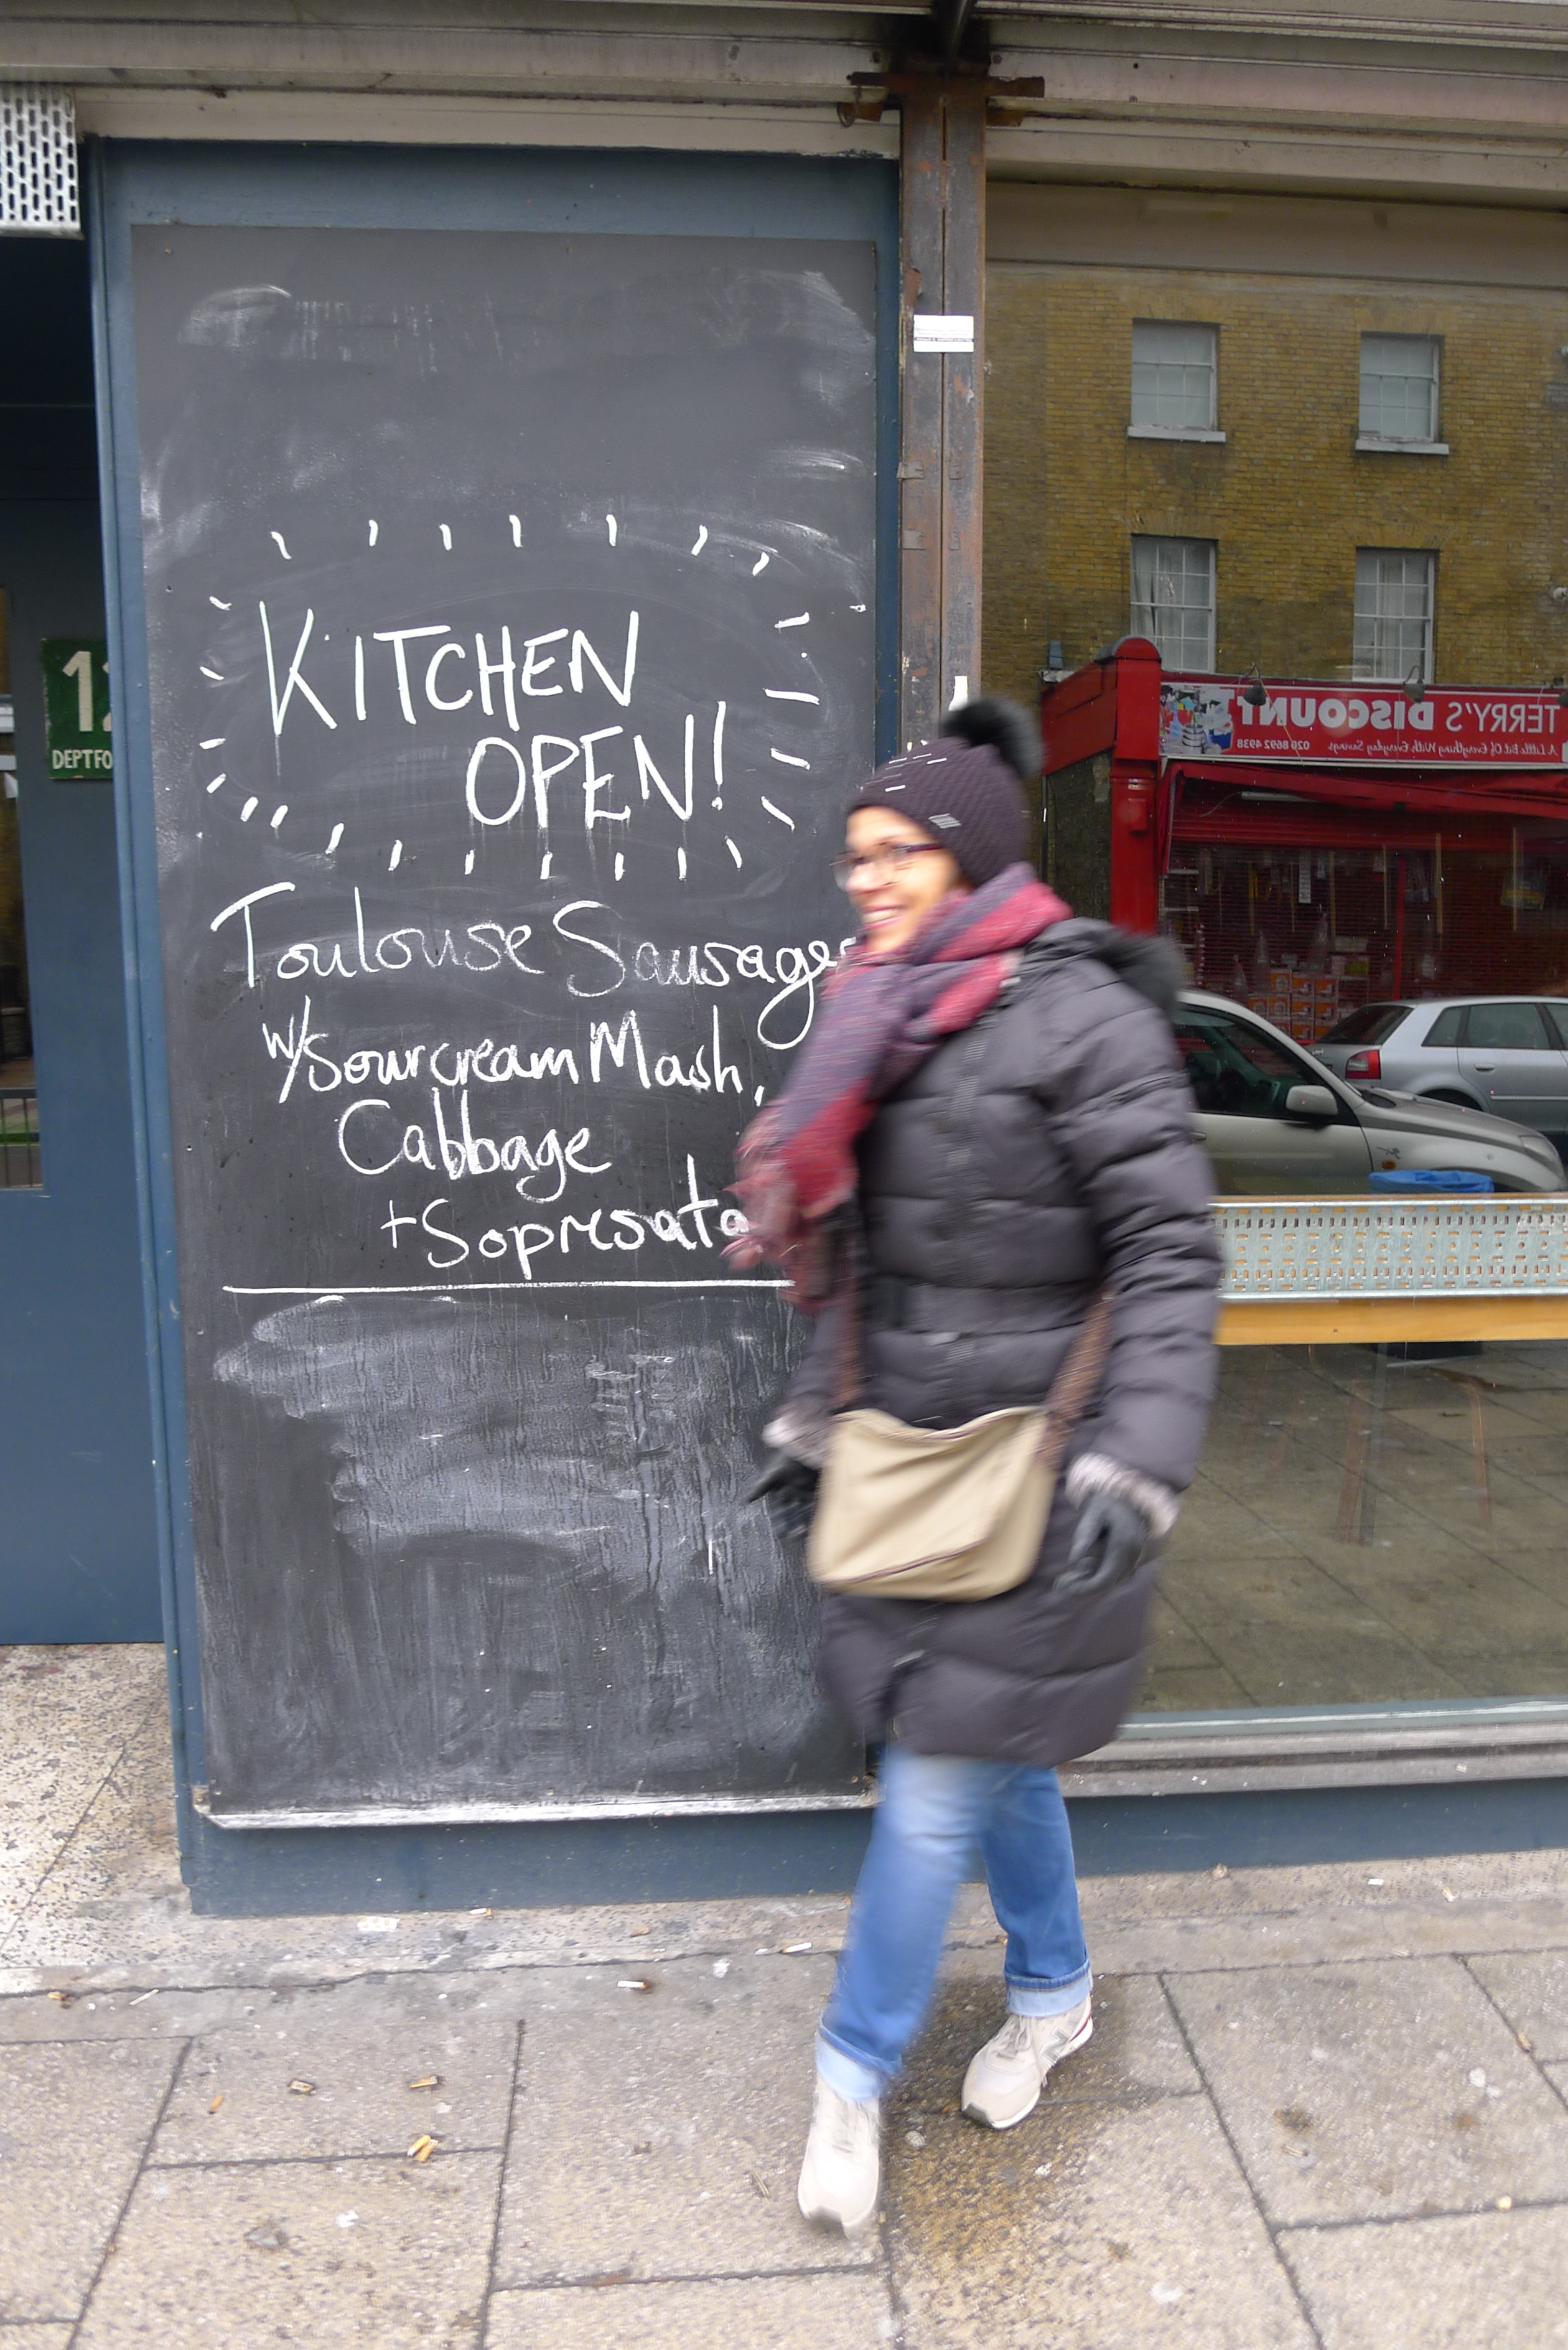 12
DEPTFO
KITCHEN
OPEN!
Toulouse Sausages
w/Sourcream Mash,
Cabbage
+Sopresata
TERRY'S DISCOUNT
A Little Bit Of Everything With Everyday Savings
020 8692 4938